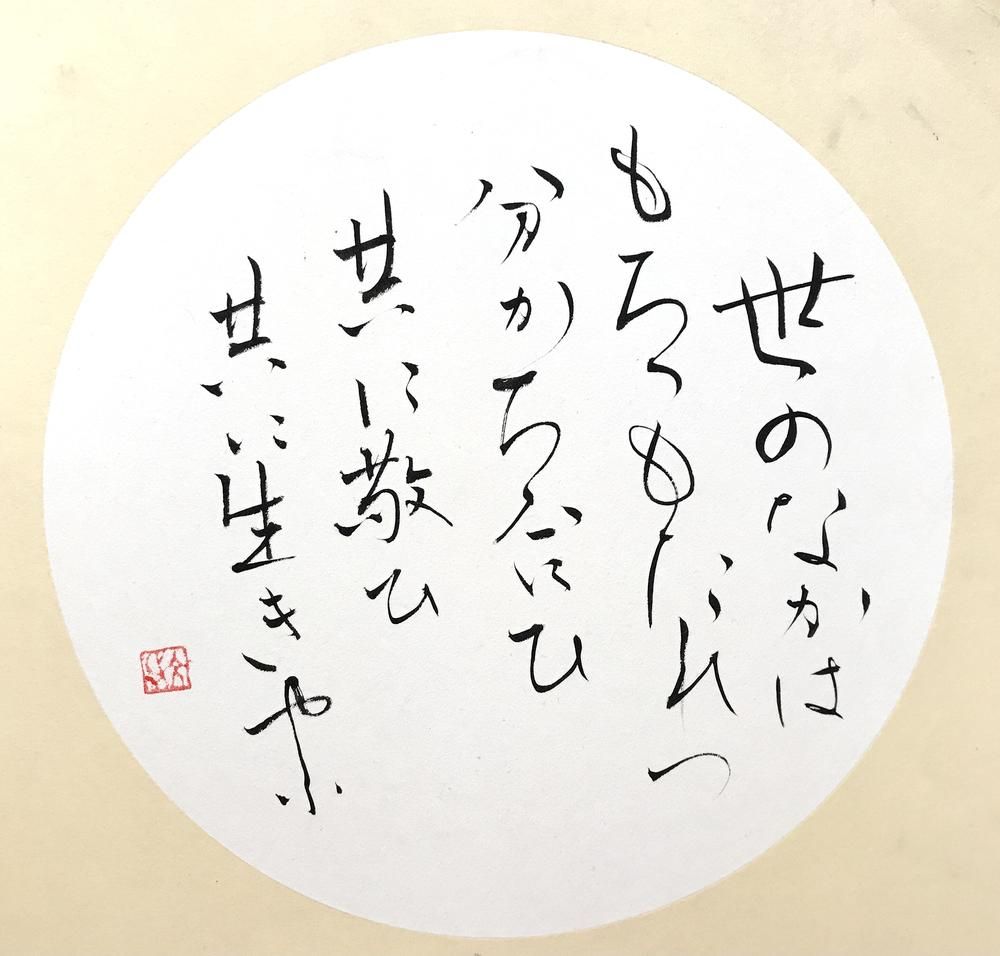 世のなかは
もちつもたれつ
分かち合ひ
共に敬ひ
共に生き